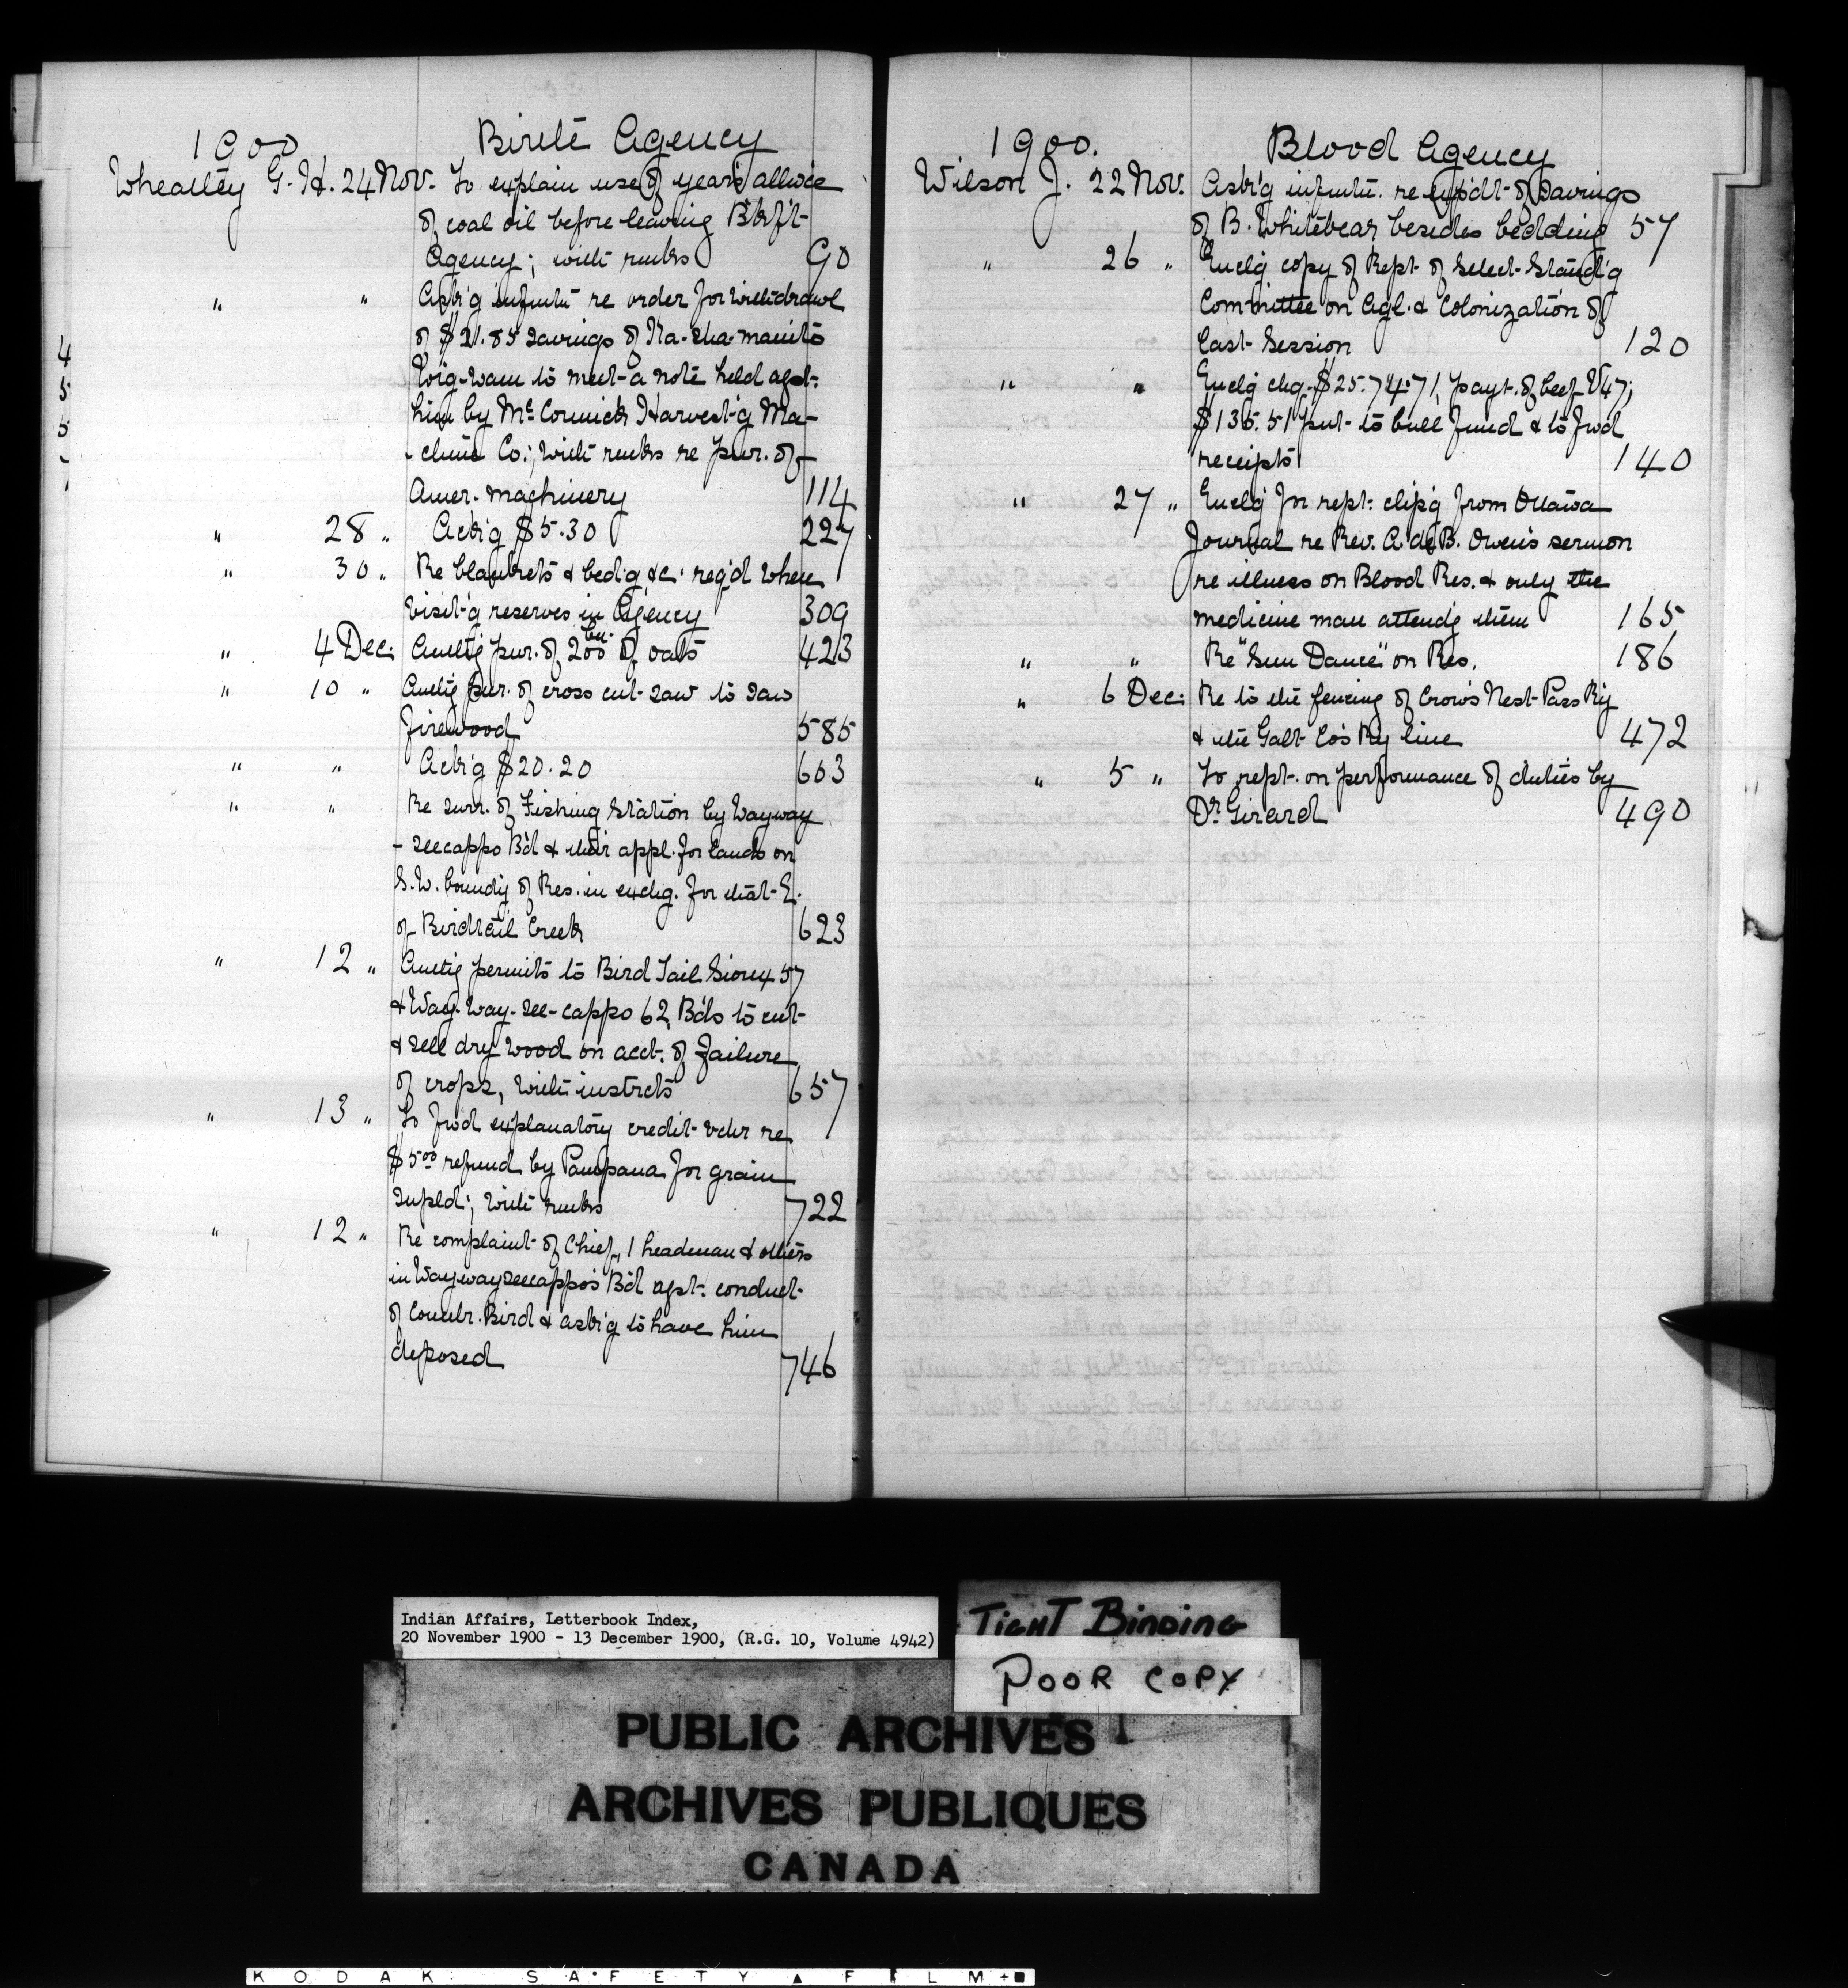 1900 Birtle Agency
Wheatley G. H. 24 Nov. To explain use of year's allwce
of coal oil before leaving Btlft
Agency; with rmks 90
" " Ask'g infmtn re order for withdrawl
of $21.85 savings of Na-sha-manito
Wig-wam to meet a note held agst.
him by McCormick Harvest'g Ma-
chine Co.; with rmks re pur. of
Amer. machinery 114
" 28 " Ackg $5.30 227
" 30 " Re blankets & bed'g &c. req'd when
visit'g reserves in Agency 309
" 4 Dec. Authg pur. of 200 bu. of oats 423
" 10 " Authg pur. of cross cut saw to saw
firewood 585
" " Ackg $20.20 603
" " Re surr. of Fishing Station by Wayway
-seecappo B'd & their appl. for lands on
S.W. boundy of Res. in exchg. for that E.
of Birdtail Creek 623
" 12 " Authg permits to Bird Tail Sioux 57
& Way-way-see-cappo 62 Bds to cut
& sell dry wood on acct. of failure
of crops, with instrcts 657
" 13 " To fwd explanatory credit vchr re
$5.00 refund by Pampana for grain
supld; with rmks 722
" 12 " Re complaint of Chief, 1 headman & others
in Waywayseecappo's B'd agst. conduct
of Councr. Bird & ask'g to have him
deposed 746
4
5
5
7
1900. Blood Agency
Wilson J. 22 Nov. Ask'g infmtn. re expdt. of savings
of B. Whitebear besides bedding 57
" 26 " Enclg copy of Rept. of Select Stand'g
Committee on Agl. & Colonization of
last Session 120
" " Enclg chq. $2574.71, payt. of beef V47;
$136.51 put to bull fund & to fwd
receipts 140
" 27 " Enclg for rept. clip'g from Ottawa
Journal re Rev. A. de B. Owen's sermon
re illness on Blood Res. & only the
medicine man attendg them 165
" " Re "Sun Dance" on Res. 186
" 6 Dec. Re to the fencing of Crow's Nest Pass Ry
& the Galt Co's Ry line 472
" 5 " To rept. on performance of duties by
Dr. Girard 490
Indian Affairs, Letterbook Index,
20 November 1900 - 13 December 1900, (R.G. 10, Volume 4942)
TIGHT BINDING
POOR COPY
PUBLIC ARCHIVES
ARCHIVES PUBLIQUES
CANADA
KODAK SAFETY FILM